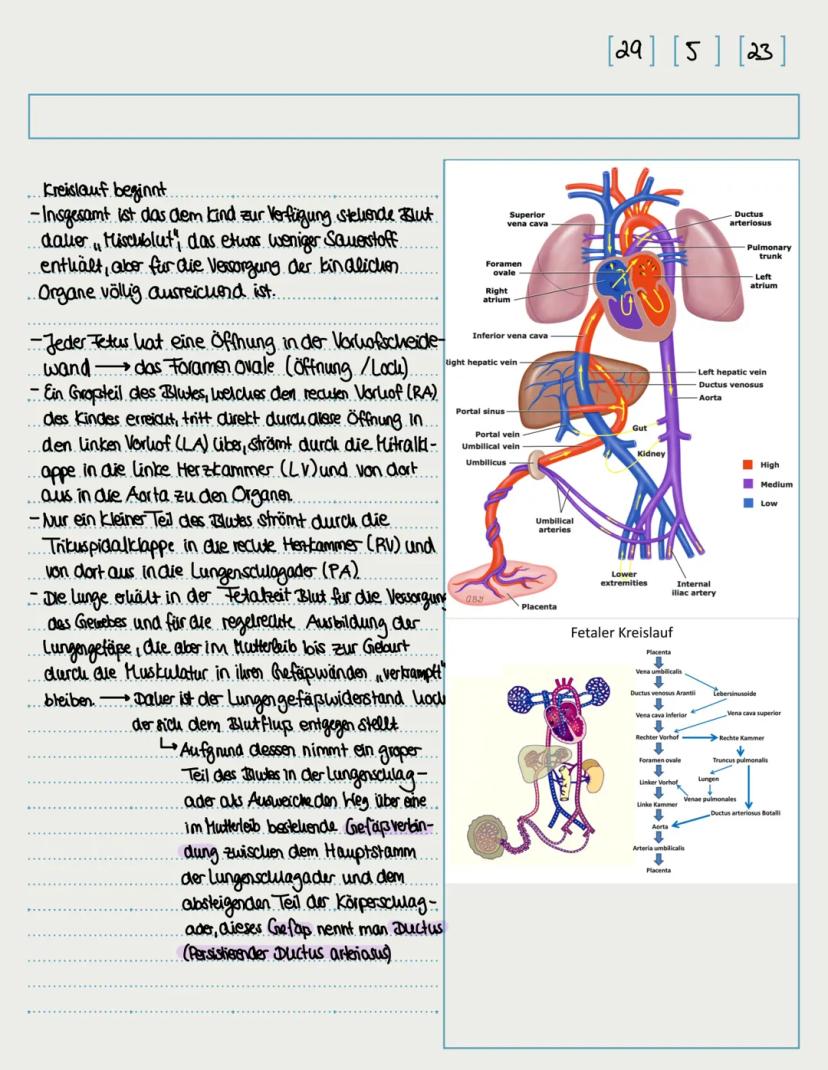 [29] [5] [23]
Kreislauf beginnt
- Insgesamt ist das dem Kind zur Verfügung stehende Blut
daher „Mischblut", das etwas weniger Sauerstoff
enthält, aber für die Versorgung der kindlichen
Organe völlig ausreichend ist.
- Jeder Fetus hat eine Öffnung in der Vorhofscheide-
wand → das Foramen ovale (Öffnung / Loch)
- Ein Großteil des Blutes, welches den rechten Vorhof (RA)
des Kindes erreicht, tritt direkt durch diese Öffnung in
den linken Vorhof (LA) über, strömt durch die Mitralkl-
appe in die linke Herzkammer (LV) und von dort
aus in die Aorta zu den Organen
- Nur ein kleiner Teil des Blutes strömt durch die
Trikuspidalklappe in die rechte Herzkammer (RV) und
von dort aus in die Lungenschlagader (PA).
- Die Lunge erhält in der Fetalzeit Blut für die Versorgung
des Gewebes und für die regelrechte Ausbildung der
Lungengefäße, die aber im Mutterleib bis zur Geburt
durch die Muskulatur in ihren Gefäßwänden „verkrampft"
bleiben. → Daher ist der Lungengefäßwiderstand hoch
der sich dem Blutfluß entgegen stellt
↳ Aufgrund dessen nimmt ein großer
Teil des Blutes in der Lungenschlag-
ader als Ausweichenden Weg über eine
im Mutterleib bestehende Gefäßverbin-
dung zwischen dem Hauptstamm
der Lungenschlagader und dem
absteigenden Teil der Körperschlag-
ader, dieses Gefäß nennt man Ductus
(Persistierender Ductus arteriosus)
Superior
vena cava
Ductus
arteriosus
Pulmonary
trunk
Foramen
ovale
Left
atrium
Right
atrium
Inferior vena cava
Right hepatic vein
Left hepatic vein
Ductus venosus
Aorta
Portal sinus
Portal vein
Gut
Umbilical vein
Kidney
Umbilicus
High
Medium
Low
Umbilical
arteries
Lower
extremities
Internal
iliac artery
Placenta
Fetaler Kreislauf
Placenta
Vena umbilicalis
Ductus venosus Arantii
Lebersinusoide
Vena cava inferior
Vena cava superior
Rechter Vorhof
Rechte Kammer
Foramen ovale
Truncus pulmonalis
Linker Vorhof
Lungen
Venae pulmonales
Linke Kammer
Ductus arteriosus Botalli
Aorta
Arteria umbilicalis
Placenta